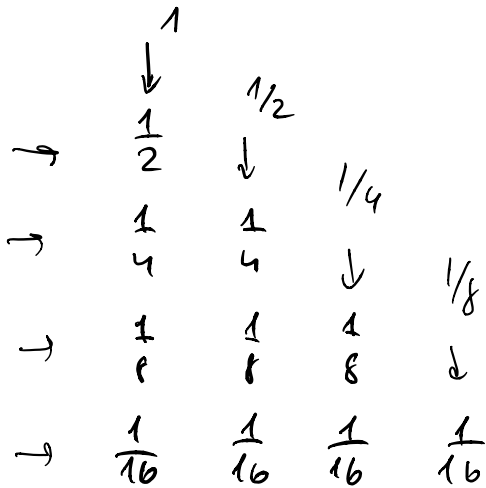 1
↓
1/2
→ 1/2 ↓
1/4
→ 1/4 1/4 ↓
1/8
→ 1/8 1/8 1/8 ↓
→ 1/16 1/16 1/16 1/16